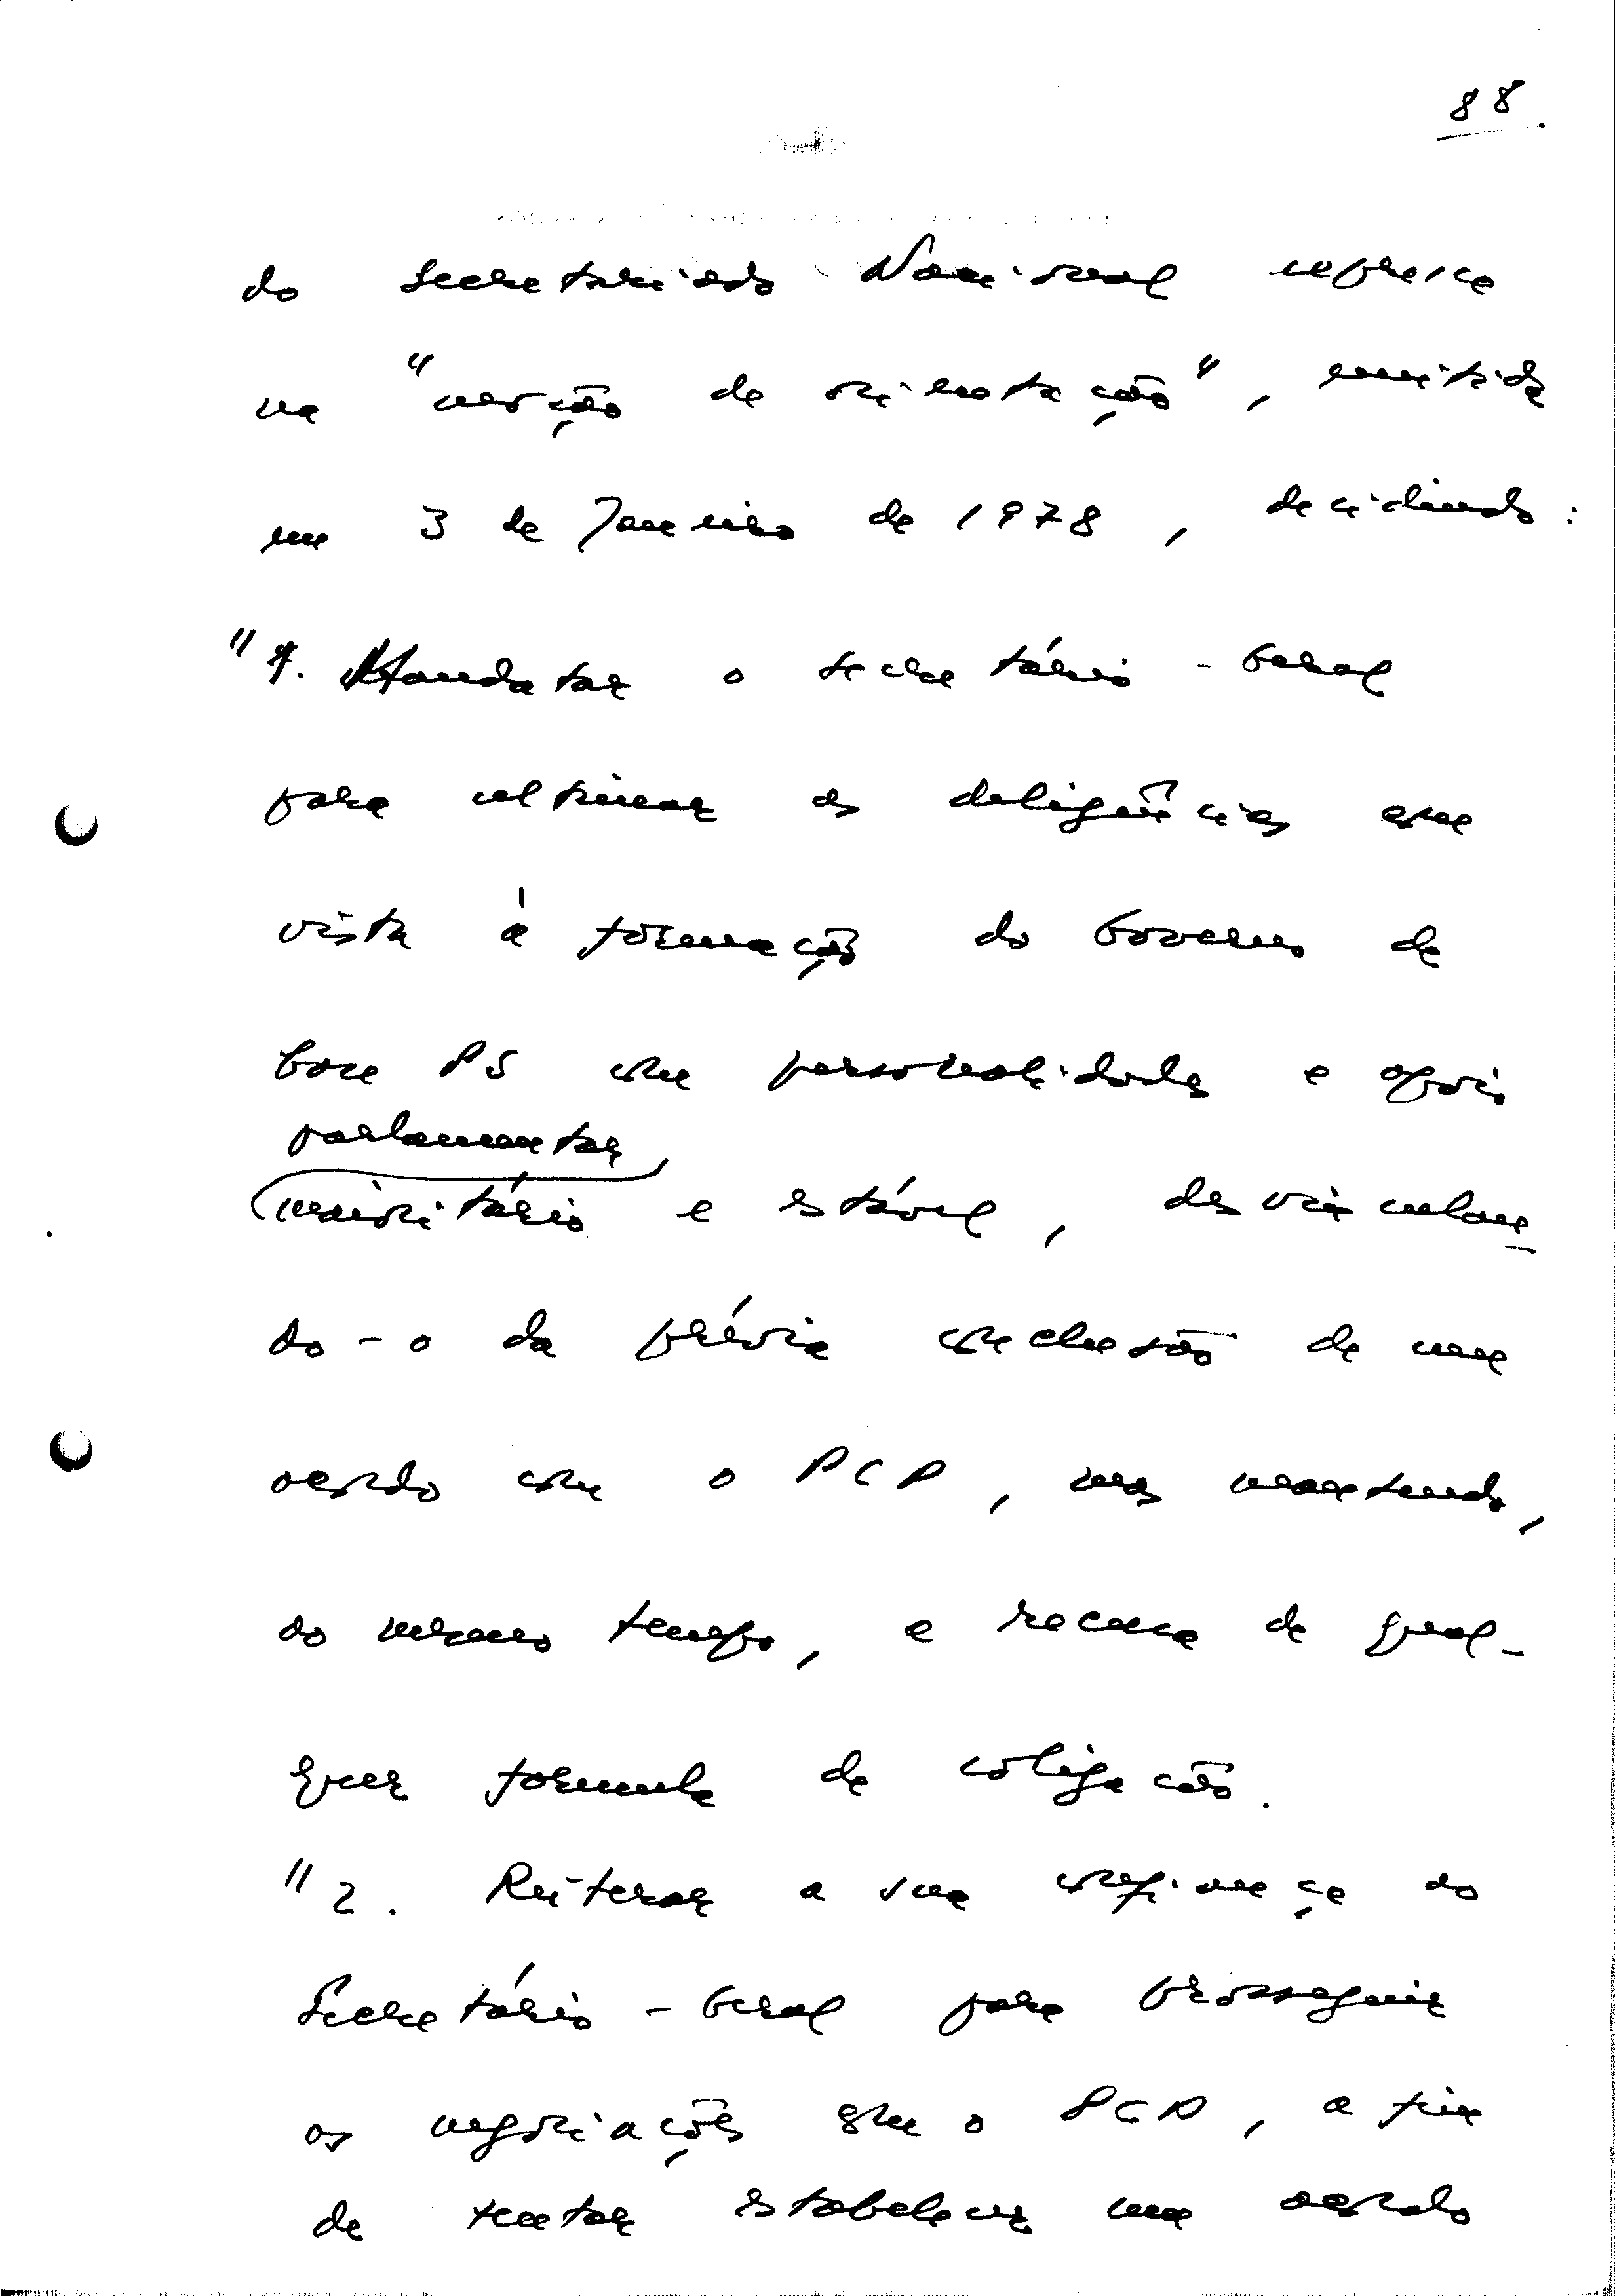 88.
do Secretariado Nacional expressa
na "moção de orientação", emitida
em 3 de Janeiro de 1978, decidindo:
"1. Mandatar o secretário-geral
para ultimar as deligências com
vista à formação do Governo de
base PS com personalidades e apoio
parlamentar
maioritário e estável, desvinculan
do-o da prévia conclusão de um
acordo com o PCP, mas mantendo,
ao mesmo tempo, a recusa de qual-
quer formula de coligação.
"2. Reiterar a sua confiança ao
Secretário-Geral para prosseguir
as negociações com o PCP, a fim
de tentar estabelecer um acordo